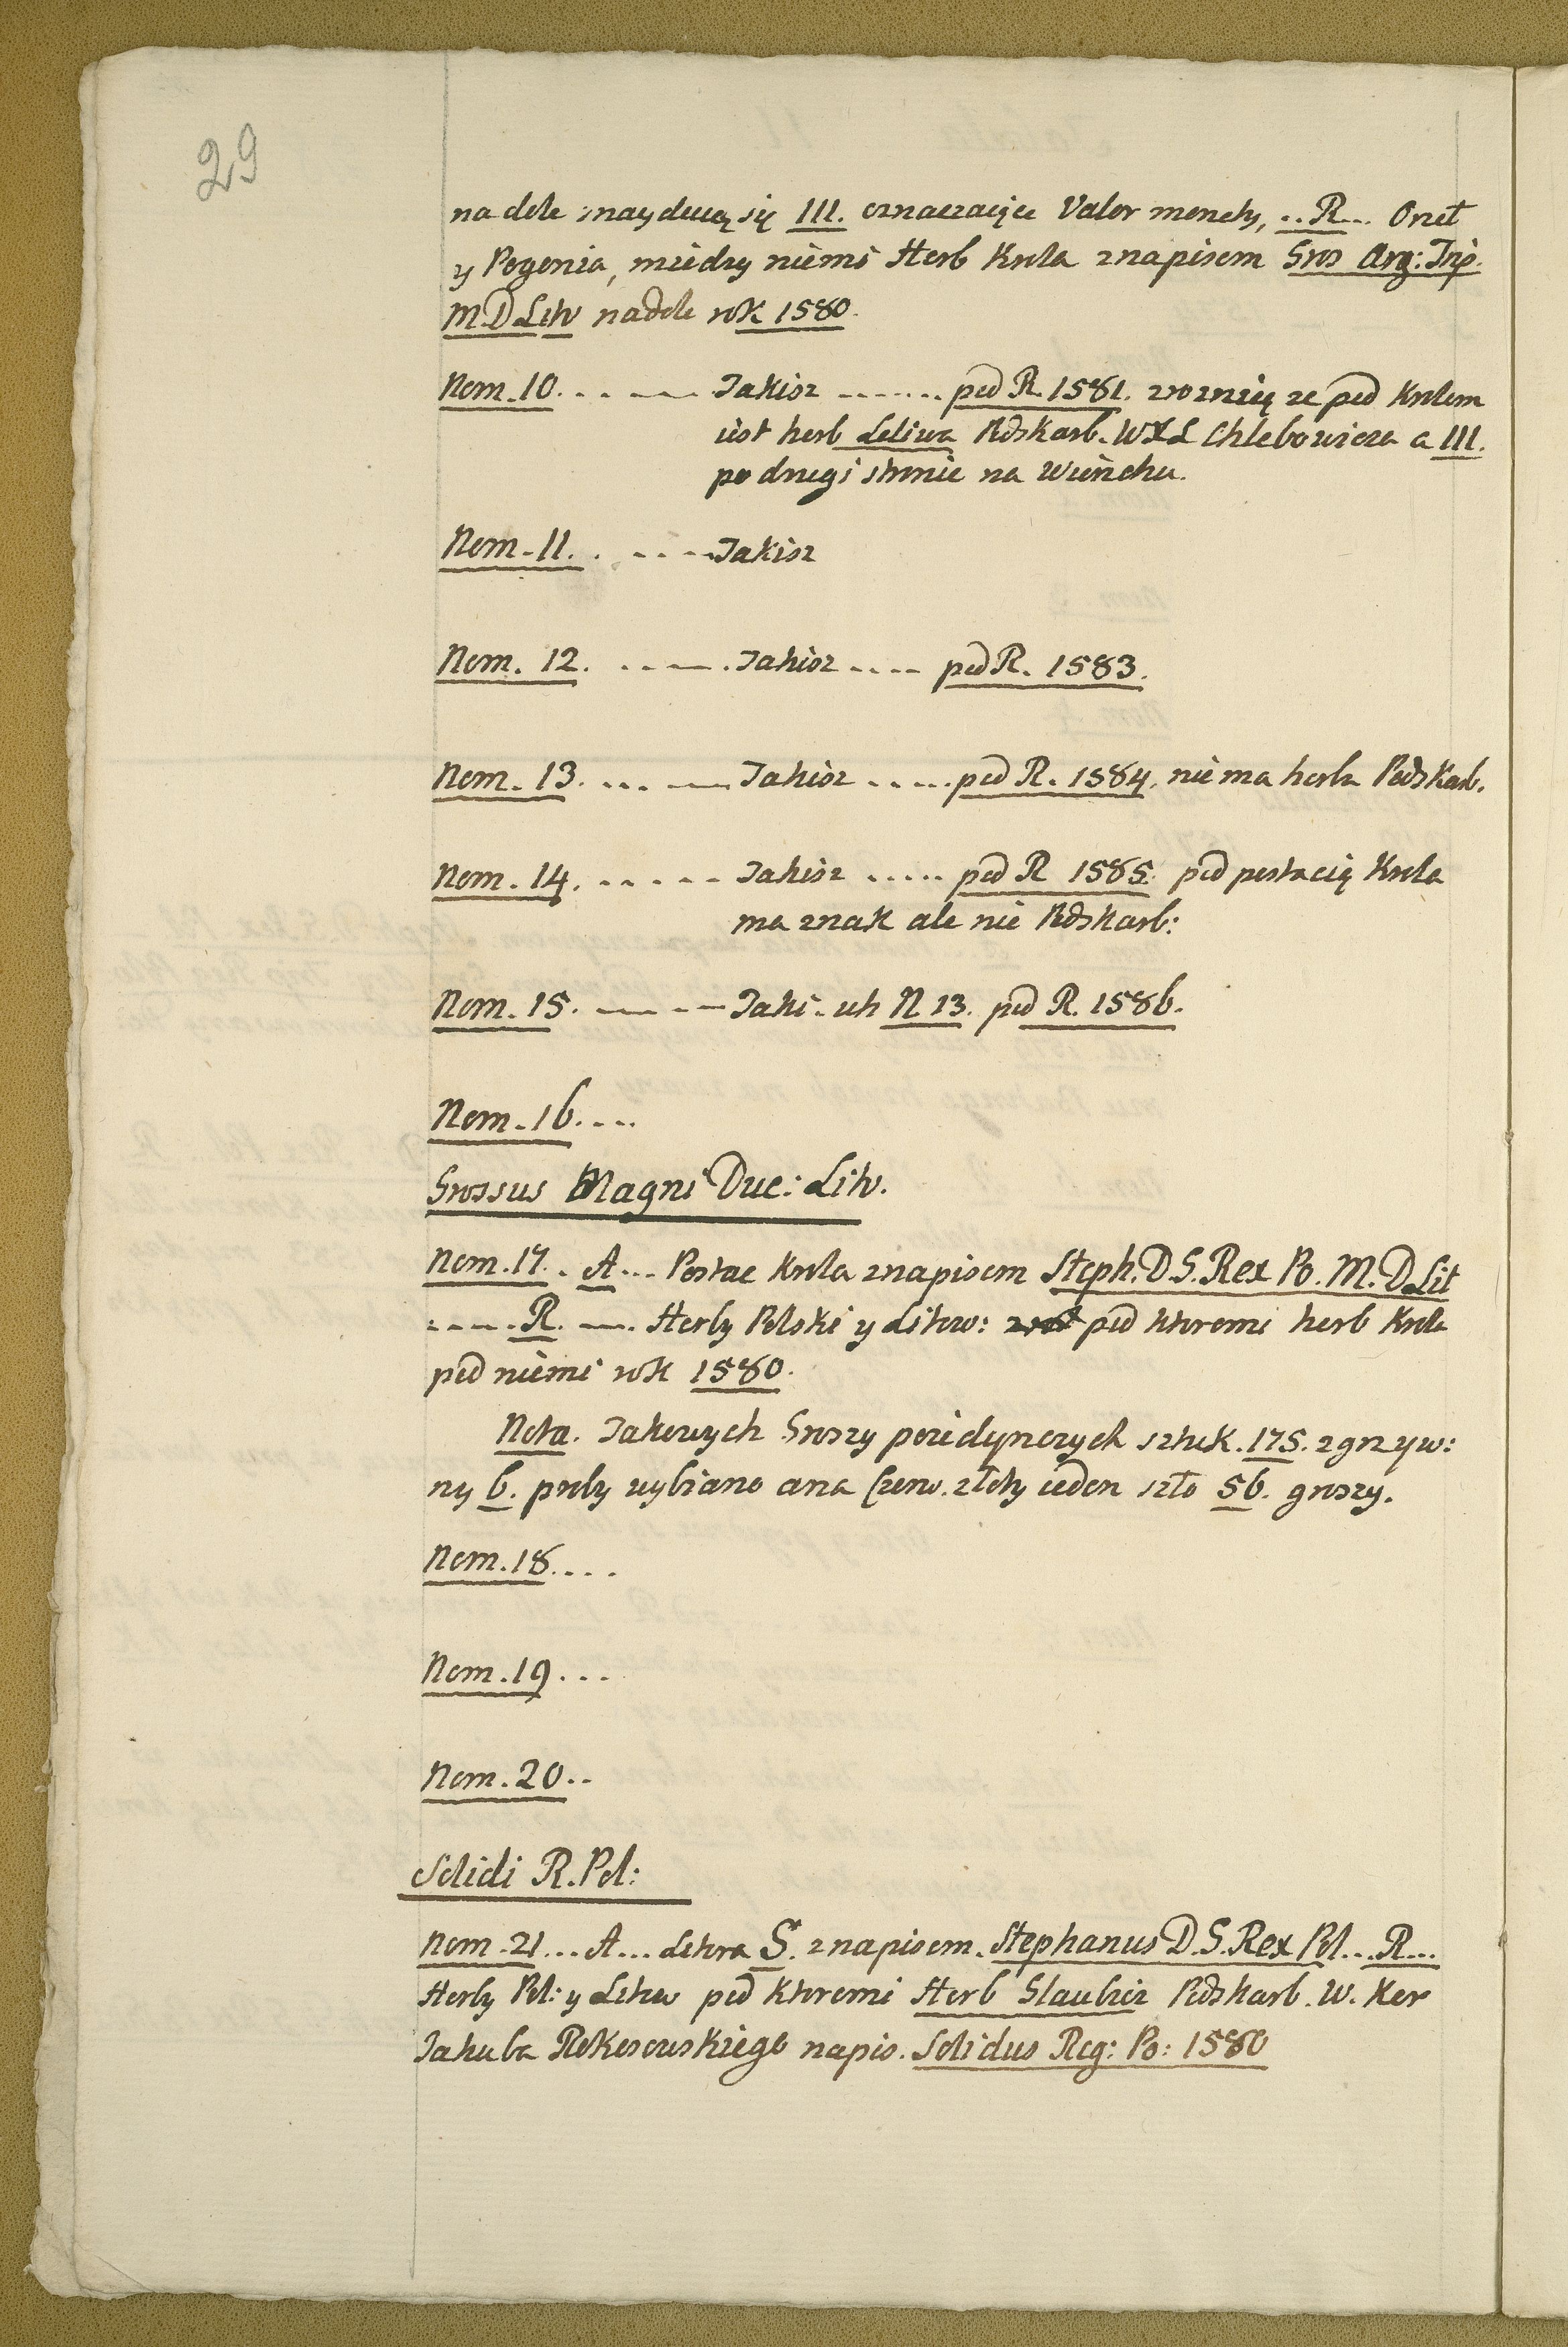 29
na dole znayduią się III. oznaczaiące Valor monety, .. R... Orzeł
y Pogonia, miedzy niemi Herb Krola z napisem Gros Arg: Trip.
M.D Litv na dole rok 1580.
Nom. 10. . . . --- Takisz ....... pod R. 1581. z rożnią ze pod Krolem
iest herb Leliwa Podskarb. WXL Chlebowicza a III.
po drugi stronie na Wierzchu.
Nom. 11. . . . --- Takisz
Nom. 12. . . . --- . Takisz .... pod R. 1583.
Nom. 13. ... --- Takisz ..... pod R. 1584. nie ma herbu Podskarb.
Nom. 14. ..... Takisz ..... pod R 1585. pod postacią Krola
ma znak ale nie Podskarb:
Nom. 15. --- -- Taki. iak N 13. pod R. 1586.
Nom. 16....
Grossus Magni Duc: Litv.
Nom. 17. . A... Postac Krola z napisem Steph. D. G. Rex Po. M. D Lit
.... R. --- . Herby Polski y Litew: pod ktoremi herb Krola
pod niemi rok 1580.
Nota. Takowych Groszy poiedynczych sztuk. 175. z grzyw:
ny 6. proby wybiano a na Czerw. złoty ieden szło 56. groszy.
Nom. 18....
Nom. 19...
Nom. 20..
Solidi R. Pol:
Nom. 21... A... Litera S. z napisem. Stephanus D. G. Rex Pol... R...
Herby Pol: y Litew pod ktoremi Herb Glaubicz Podskarb. W. Kor
Jakuba Rokosowskiego napis. Solidus Reg: Po: 1580